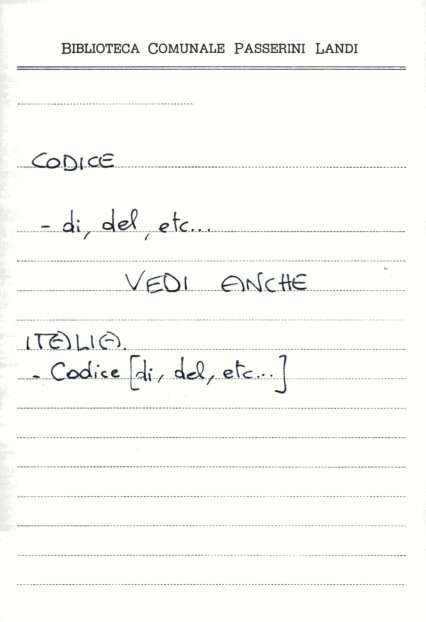 BIBLIOTECA COMUNALE PASSERINI LANDI
CODICE
- di, del, etc...
VEDI ANCHE
ITALIA.
- Codice [di, del, etc...]